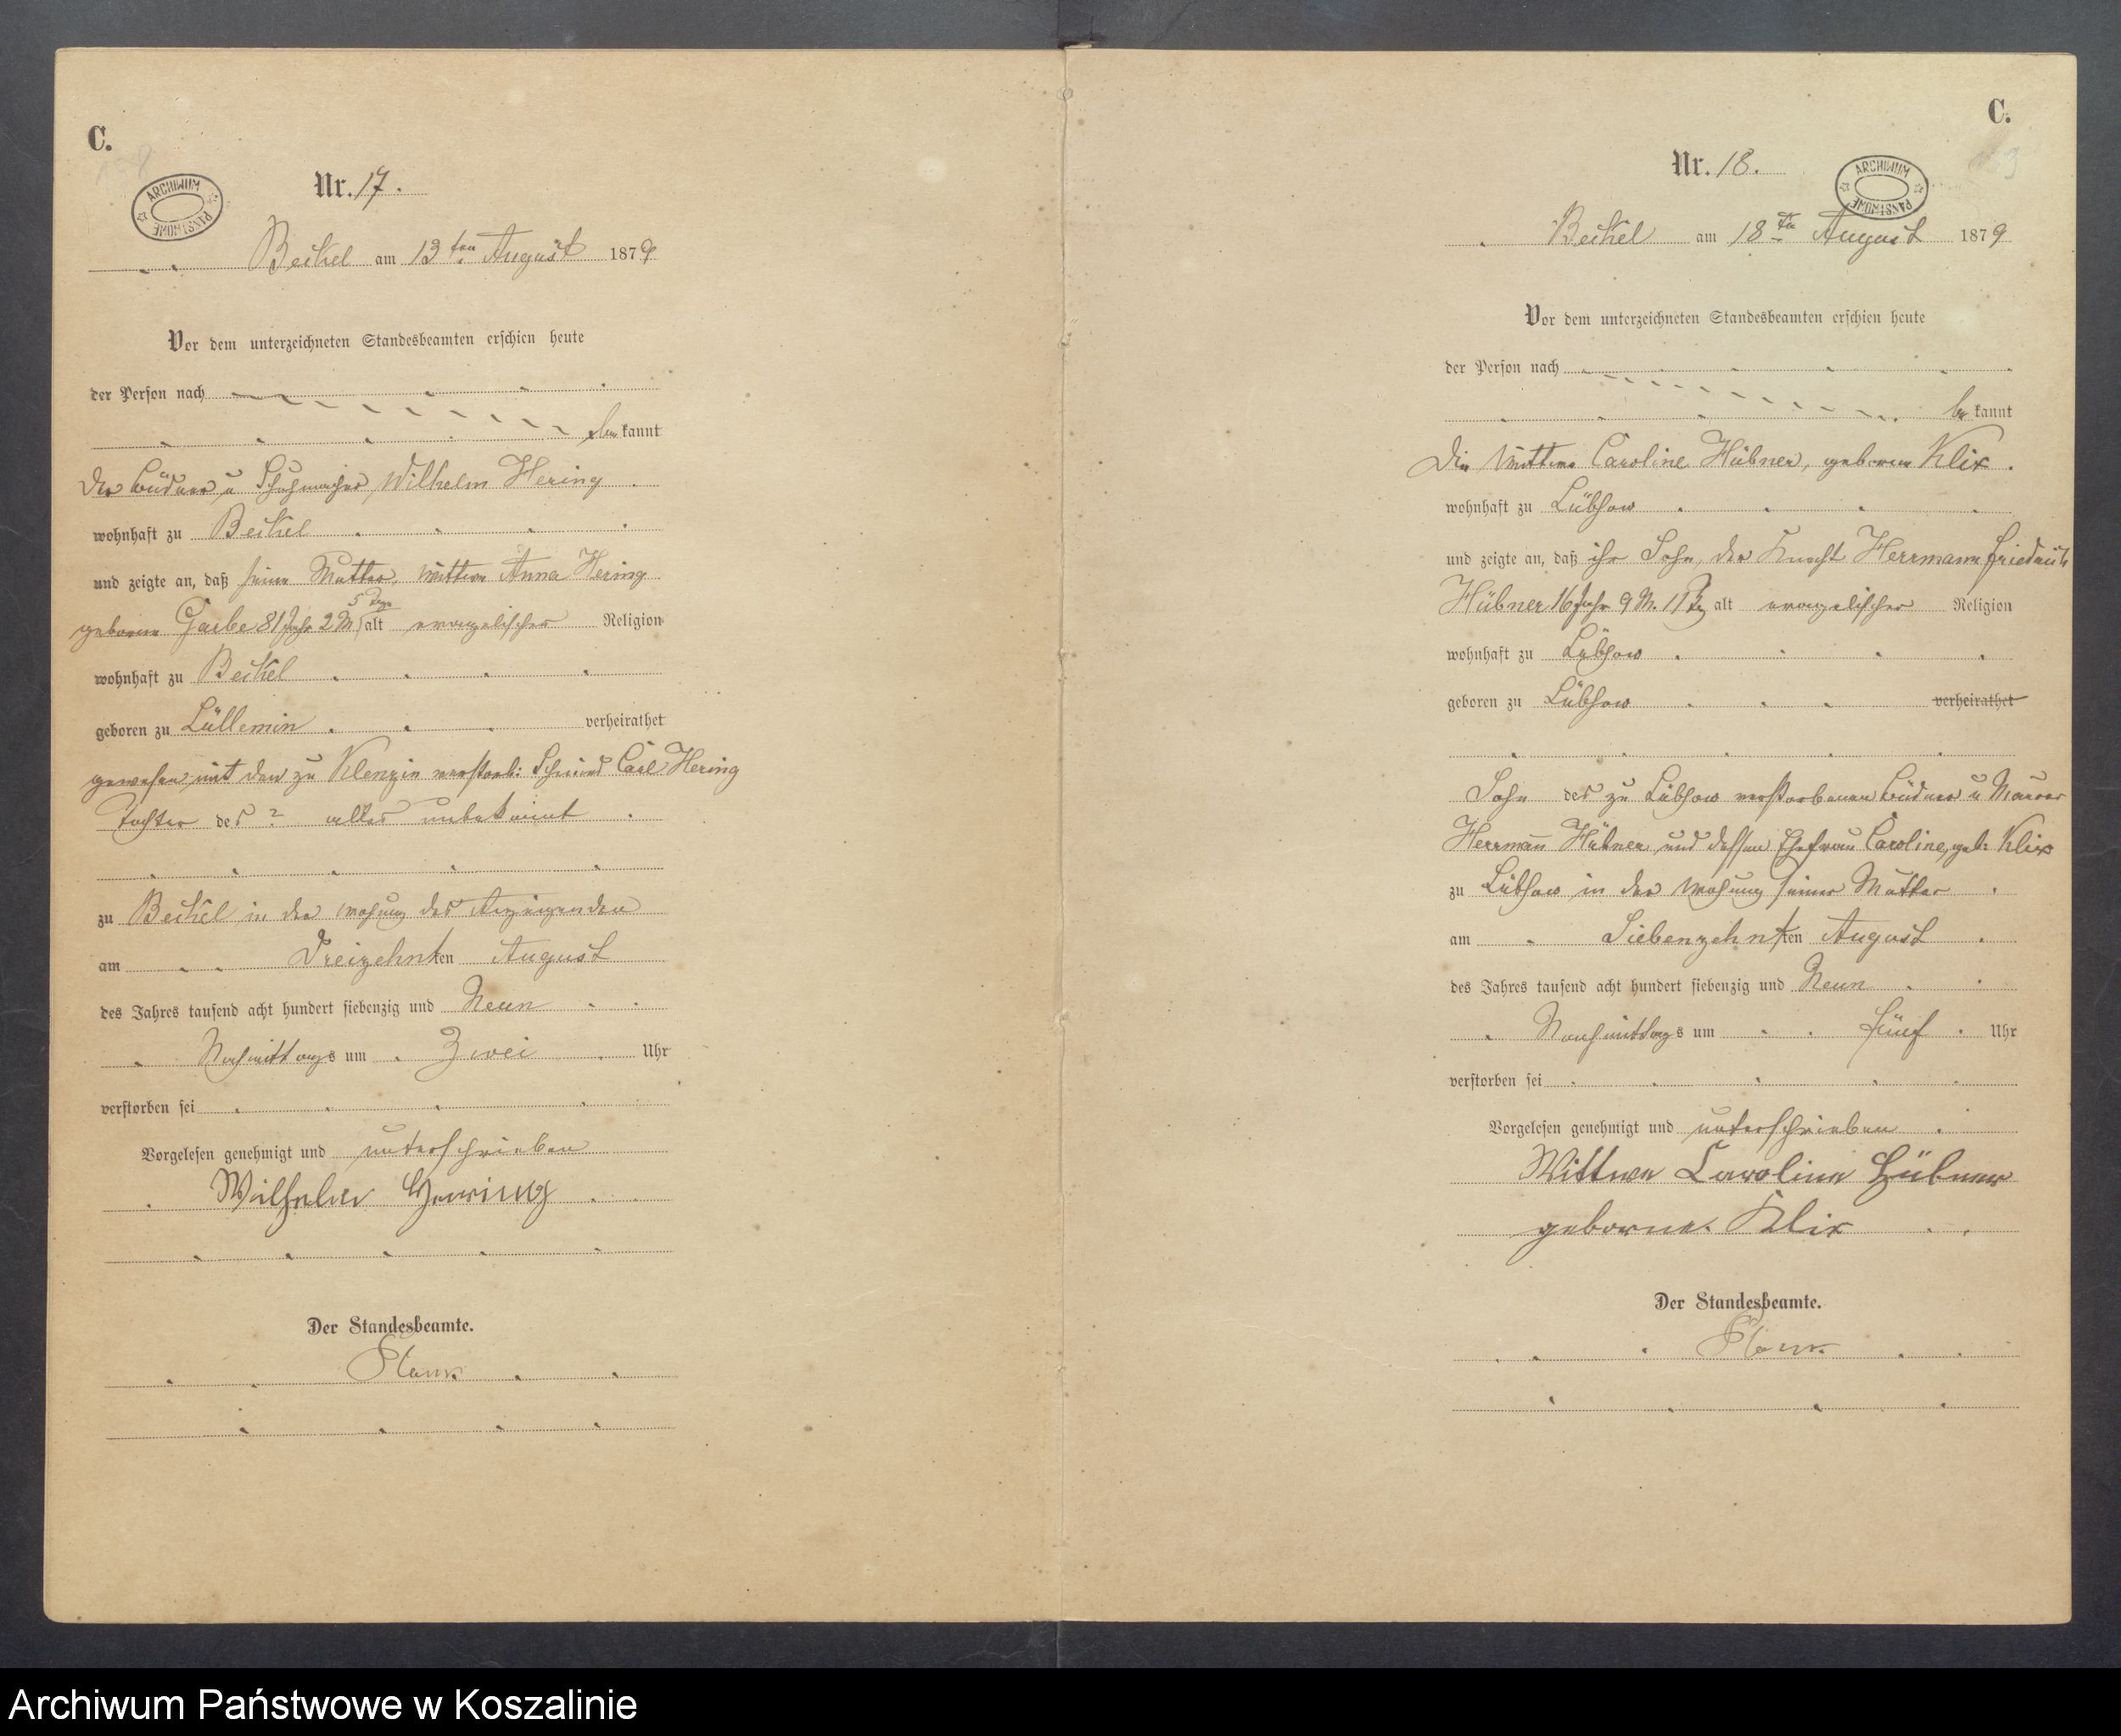 C.
ARCHIWUM PAŃSTWOWE
Nr. 17.
Beckel am 13ten August 1879
Vor dem unterzeichneten Standesbeamten erschien heute
der Person nach
be kannt
der Büdner u Schuhmacher Wilhelm Hering
wohnhaft zu Beckel
und zeigte an, daß seine Mutter, Wittwe Anna Hering
5 Tage
geborene Garbe 81 Jahr 2 M. alt evangelischer Religion
wohnhaft zu Beckel
geboren zu Lüllemin verheirathet
gewesen mit dem zu Klenzin verstorb: Schmied Carl Hering
Tochter des ? alles unbekannt
zu Beckel in der Wohnung des Anzeigenden
am Dreizehnten August
des Jahres tausend acht hundert siebenzig und Neun
Nachmittags um Zwei Uhr
verstorben sei
Vorgelesen genehmigt und unterschrieben
Wilhelm Hering
Der Standesbeamte.
C.
ARCHIWUM PAŃSTWOWE
Nr. 18.
Beckel am 18ten August 1879
Vor dem unterzeichneten Standesbeamten erschien heute
der Person nach
be kannt
Die Wittwe Caroline Hübner, geborene Klix.
wohnhaft zu Lübzow
und zeigte an, daß ihr Sohn, der Knecht Herrmann Friedrich
Hübner 16 Jahr 9 M. 11 Tg alt evangelischer Religion
wohnhaft zu Lübzow
geboren zu Lübzow verheirathet
Sohn des zu Lübzow verstorbenen Büdner u Maurer
Herrmann Hübner und dessen Ehefrau Caroline, geb: Klix
zu Lübzow in der Wohnung seiner Mutter
am Siebenzehnten August
des Jahres tausend acht hundert siebenzig und Neun
Nachmittags um Fünf Uhr
verstorben sei
Vorgelesen genehmigt und unterschrieben
Wittwe Caroline Hübner
geborne. Klix
Der Standesbeamte.
Archiwum Państwowe w Koszalinie